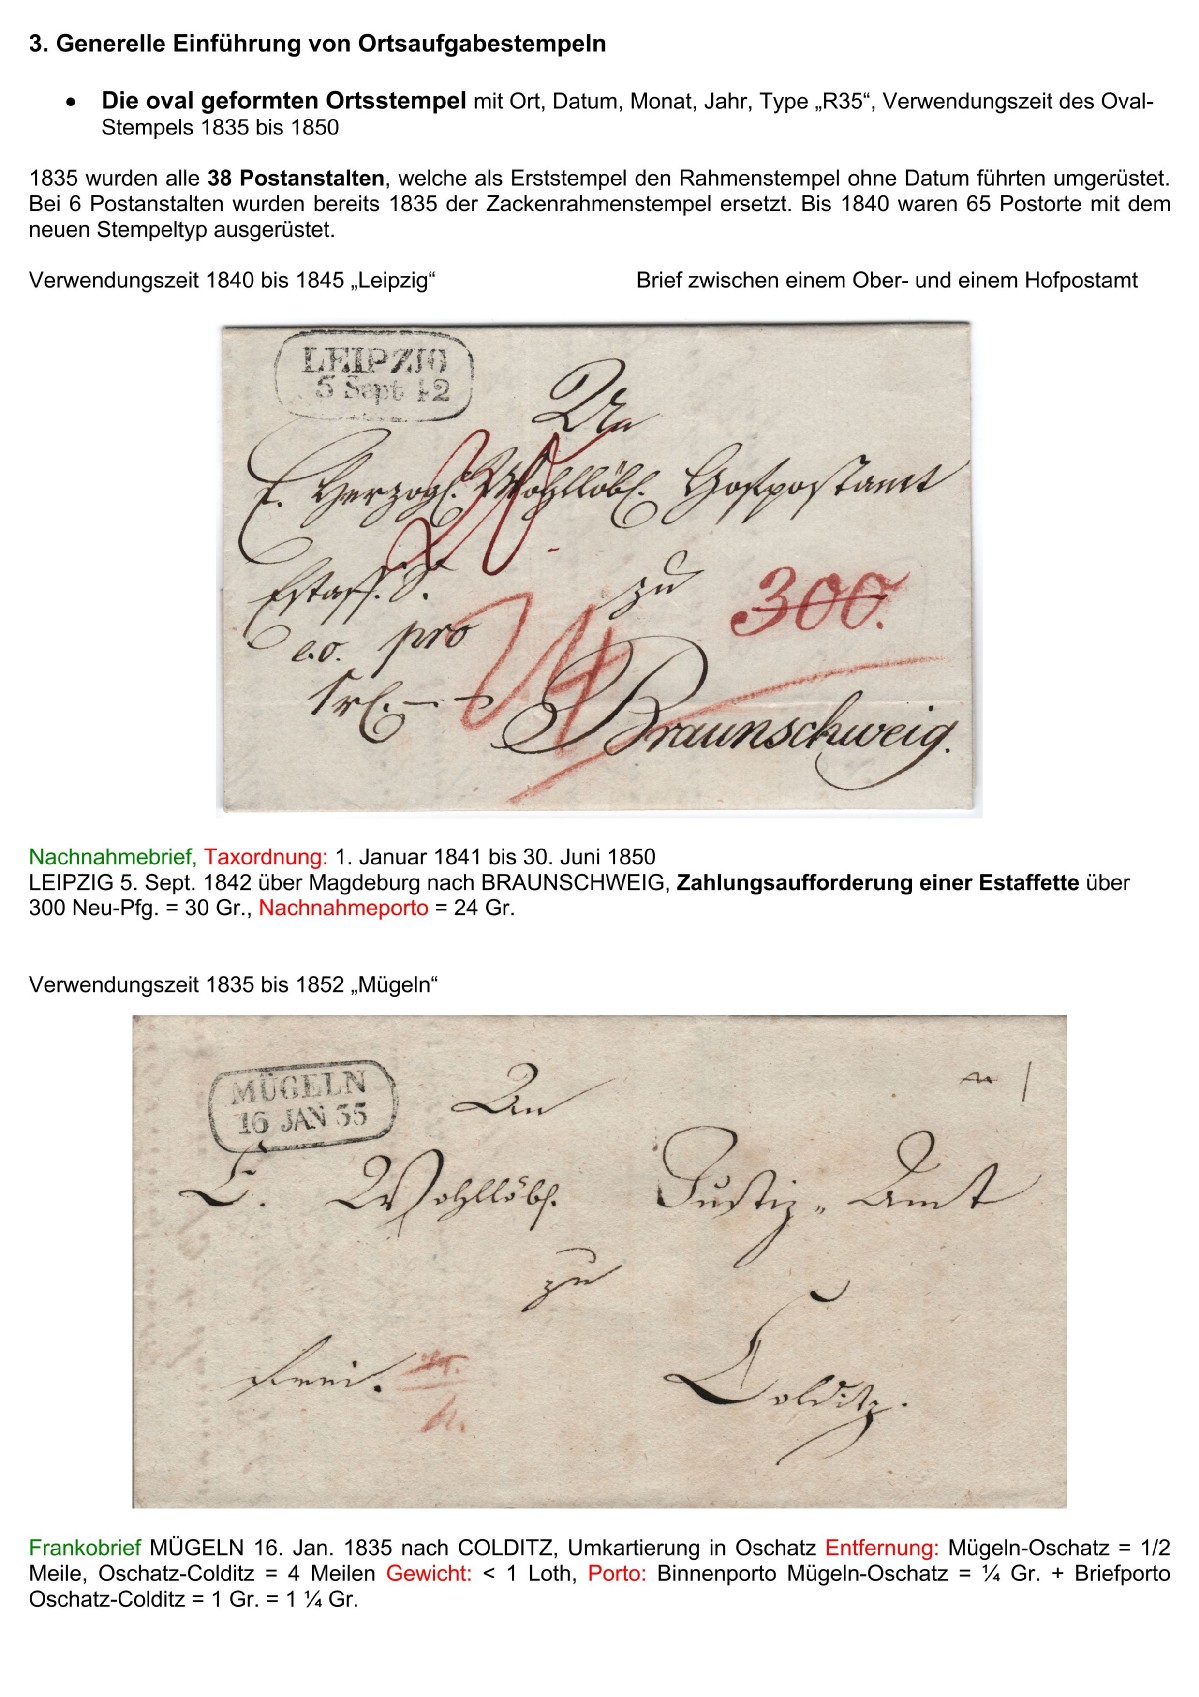 3. Generelle Einführung von Ortsaufgabestempeln
• Die oval geformten Ortsstempel mit Ort, Datum, Monat, Jahr, Type „R35“, Verwendungszeit des Oval-
Stempels 1835 bis 1850
1835 wurden alle 38 Postanstalten, welche als Erststempel den Rahmenstempel ohne Datum führten umgerüstet.
Bei 6 Postanstalten wurden bereits 1835 der Zackenrahmenstempel ersetzt. Bis 1840 waren 65 Postorte mit dem
neuen Stempeltyp ausgerüstet.
Verwendungszeit 1840 bis 1845 „Leipzig“
Brief zwischen einem Ober- und einem Hofpostamt
LEIPZIG
5 Sept 42
An
E. Herzogl. Wohllöbl. Hofpostamt
Estaff. S.
zu
300.
e.o. pro
24
Braunschweig.
Nachnahmebrief, Taxordnung: 1. Januar 1841 bis 30. Juni 1850
LEIPZIG 5. Sept. 1842 über Magdeburg nach BRAUNSCHWEIG, Zahlungsaufforderung einer Estaffette über
300 Neu-Pfg. = 30 Gr., Nachnahmeporto = 24 Gr.
Verwendungszeit 1835 bis 1852 „Mügeln“
MÜGELN
16 JAN 35
An
E. Wohllöbl. Justiz-Amt
zu
frei.
Colditz.
Frankobrief MÜGELN 16. Jan. 1835 nach COLDITZ, Umkartierung in Oschatz Entfernung: Mügeln-Oschatz = 1/2
Meile, Oschatz-Colditz = 4 Meilen Gewicht: < 1 Loth, Porto: Binnenporto Mügeln-Oschatz = ¼ Gr. + Briefporto
Oschatz-Colditz = 1 Gr. = 1 ¼ Gr.